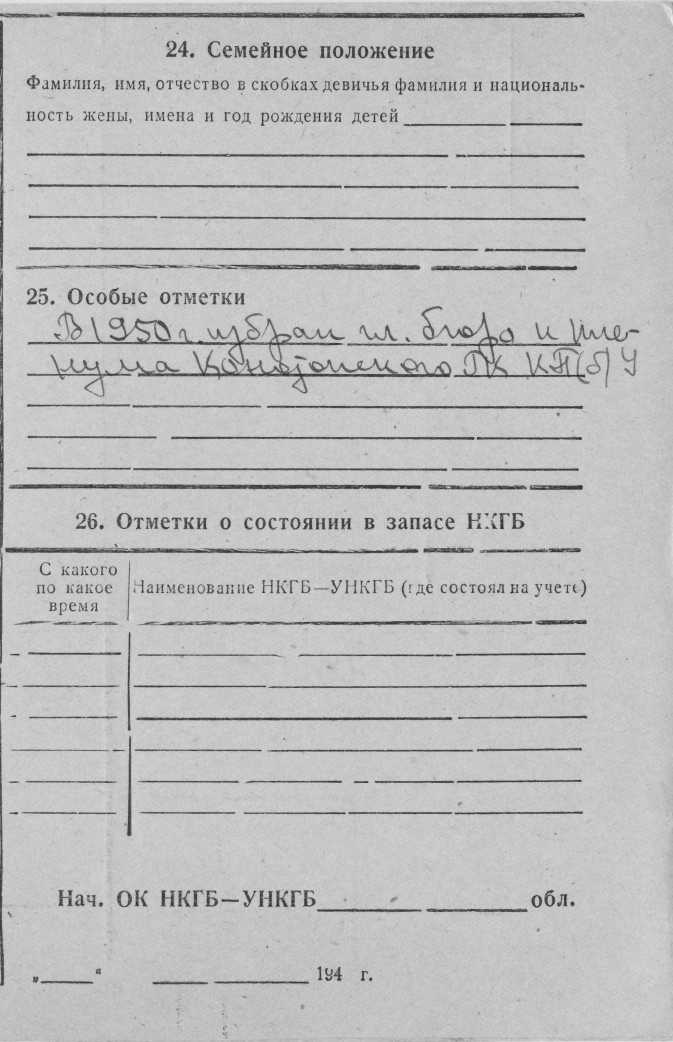 24. Семейное положение
Фамилия, имя, отчество в скобках девичья фамилия и националь-
ность жены, имена и год рождения детей
25. Особые отметки
В 1950 г. избран чл. бюро и пле-
нума Конотопского ГК КП(б)У
26. Отметки о состоянии в запасе НКГБ
С какого
по какое
время
Наименование НКГБ—УНКГБ (где состоял на учете)
Нач. ОК НКГБ—УНКГБ обл.
„ “ 194 г.